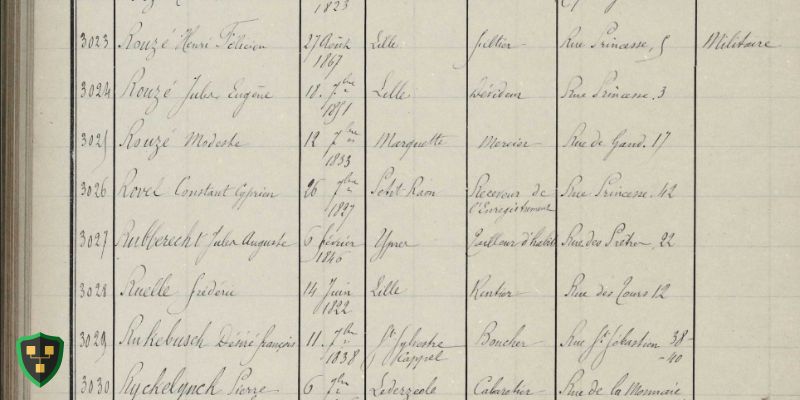 1823
3023 Rouzé Henri Félicien 27 Août 1867 Lille Sellier Rue Princesse, 5 Militaire
3024 Rouzé Jules Eugène 18 7bre 1851 Lille Dévideur Rue Princesse. 3
3025 Rouzé Modeste 12 7bre 1833 Marquette Mercier Rue de Gand. 17
3026 Rovel Constant Cyprien 26 7bre 1827 Receveur de l'Enregistrement Rue Princesse. 42
3027 Rubbrecht Jules Auguste 6 février 1840 Ypres Tailleur d'habits Rue des Prêtres, 22
3028 Ruelle frédéric 14 Juin 1822 Lille Rentier Rue des Tours 12
3029 Rukebusch Désiré françois 11. 7bre 1838 St Sylvestre Cappel Boucher Rue St Sébastien 38-40
3030 Ryckelynck Pierre 6 7bre Lederzeele Cabaretier Rue de la Monnaie